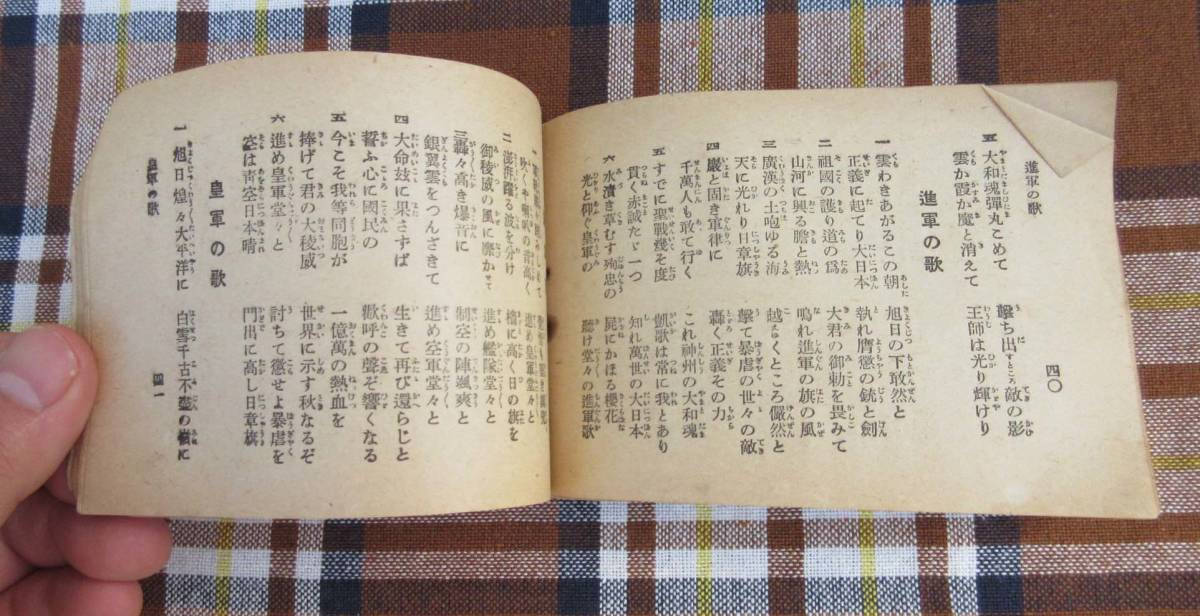 進軍の歌
四〇
五 大和魂彈丸こめて 擊ち出すところ敵の影
雲か霞か魔と消えて 王師は光り輝けり
進軍の歌
一 雲わきあがるこの朝 旭日の下敢然と
正義に起てり大日本 執れ膺懲の銃と劍
二 祖國の護り道の爲 大君の御勅を畏みて
山河に興る膽と熱 鳴れ進軍の旗の風
三 廣漠の土咆ゆる海 越ゆくところ儼然と
天に光れり日章旗 擊て暴虐の世々の敵
四 嚴と固き軍律に 轟く正義その力
千萬人も敢て行く これ神州の大和魂
五 すでに聖戰幾そ度 凱歌は常に我とあり
貫く赤誠たゞ一つ 知れ萬世の大日本
六 水漬き草むす殉忠の 屍にかほる櫻花
光と仰ぐ皇軍の 聽け堂々の進軍歌
吹くや喇叭の音高く 進め皇軍堂々と
二 澎湃躍る波を分け 檣に高く日の旗を
御稜威の風に靡かせて 進め艦隊堂々と
三 轟々高き爆音に 制空の陣颯爽と
銀翼雲をつんざきて 進め空軍堂々と
四 大命玆に果さずば 生きて再び還らじと
誓ふ心に國民の 歡呼の聲ぞ響くなる
五 今こそ我等同胞が 一億萬の熱血を
捧げて君の大稜威 世界に示す秋なるぞ
六 進め皇軍堂々と 討ちて懲せよ暴虐を
空は靑空日本晴 門出に高し日章旗
皇軍の歌
一 旭日煌々大平洋に 白雪千古不盡の嶺に
皇軍の歌
四一